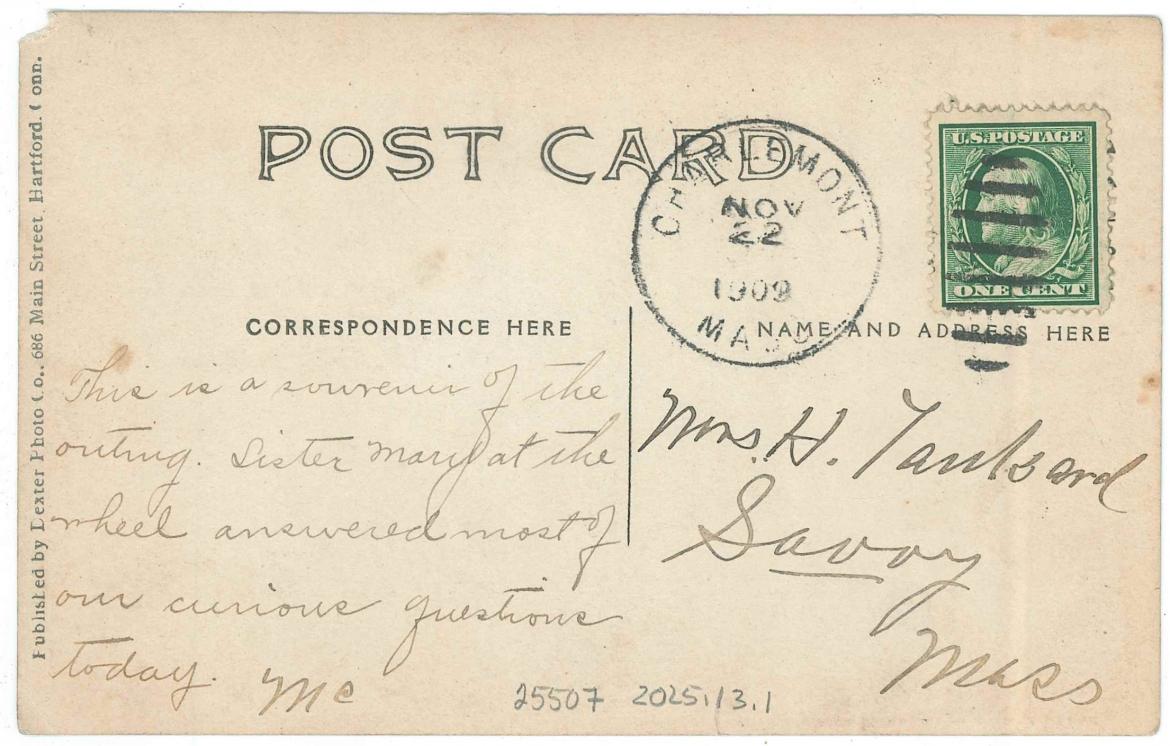 POST CARD
CHARLEMONT
NOV
22
1909
MASS
U.S. POSTAGE
ONE CENT
CORRESPONDENCE HERE
NAME AND ADDRESS HERE
This is a souvenir of the
outing. Sister Mary at the
wheel answered most of
our curious questions
today. Mc
Mrs. H. Tanksard
Savoy
Mass
25507 2025.13.1
Published by Dexter Photo Co., 686 Main Street, Hartford, Conn.